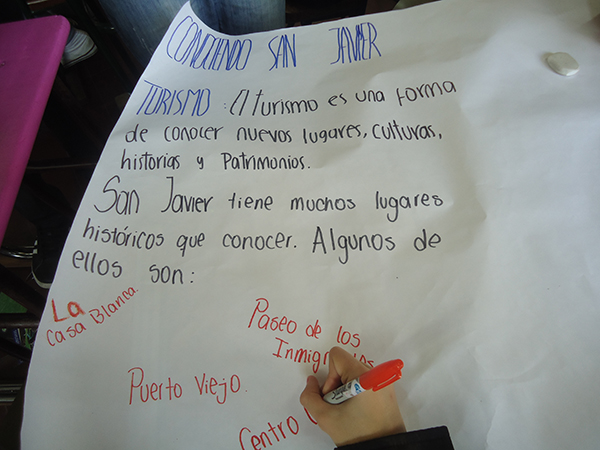 CONOCIENDO SAN JAVIER
TURISMO: El turismo es una forma
de conocer nuevos lugares, culturas,
historias y Patrimonios.
San Javier tiene muchos lugares
históricos que conocer. Algunos de
ellos son:
La
Casa Blanca.
Paseo de los
Puerto Viejo.
Centro